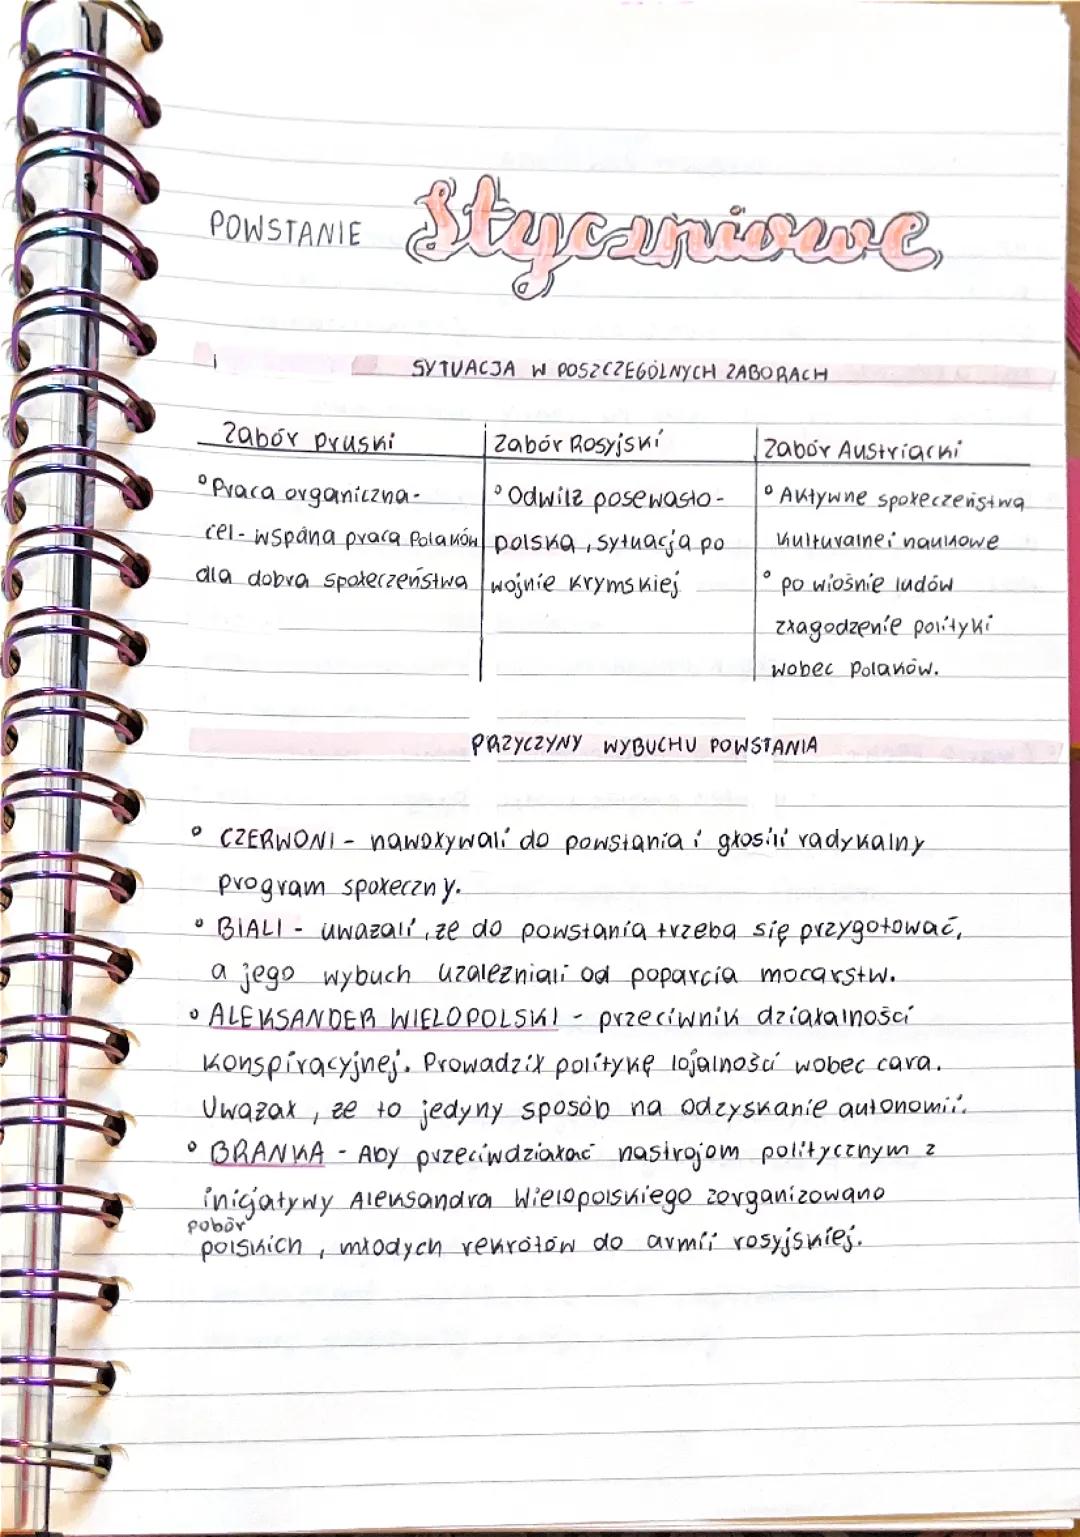 POWSTANIE Styczniowe
SYTUACJA W POSZCZEGÓLNYCH ZABORACH
Zabór pruski
°Praca organiczna-
cel- wspóna praca Polaków
dla dobra społeczeństwa
Zabór Rosyjski
°Odwilż posewasto-
polska, sytuacja po
wojnie Krymskiej
Zabór Austriacki
° Aktywne społeczeństwa
kulturalne i naukowe
° po wiośnie ludów
złagodzenie polityki
wobec Polaków.
PRZYCZYNY WYBUCHU POWSTANIA
° CZERWONI - nawoływali do powstania i głosili radykalny
program społeczny.
° BIALI - uważali, że do powstania trzeba się przygotować,
a jego wybuch uzależniali od poparcia mocarstw.
° ALEKSANDER WIELOPOLSKI - przeciwnik działalności
konspiracyjnej. Prowadził politykę lojalności wobec cara.
Uważał, że to jedyny sposób na odzyskanie autonomii.
° BRANKA - Aby przeciwdziałać nastrojom politycznym z
inicjatywy Aleksandra Wielopolskiego zorganizowano
pobór
polskich, młodych rekrótów do armii rosyjskiej.